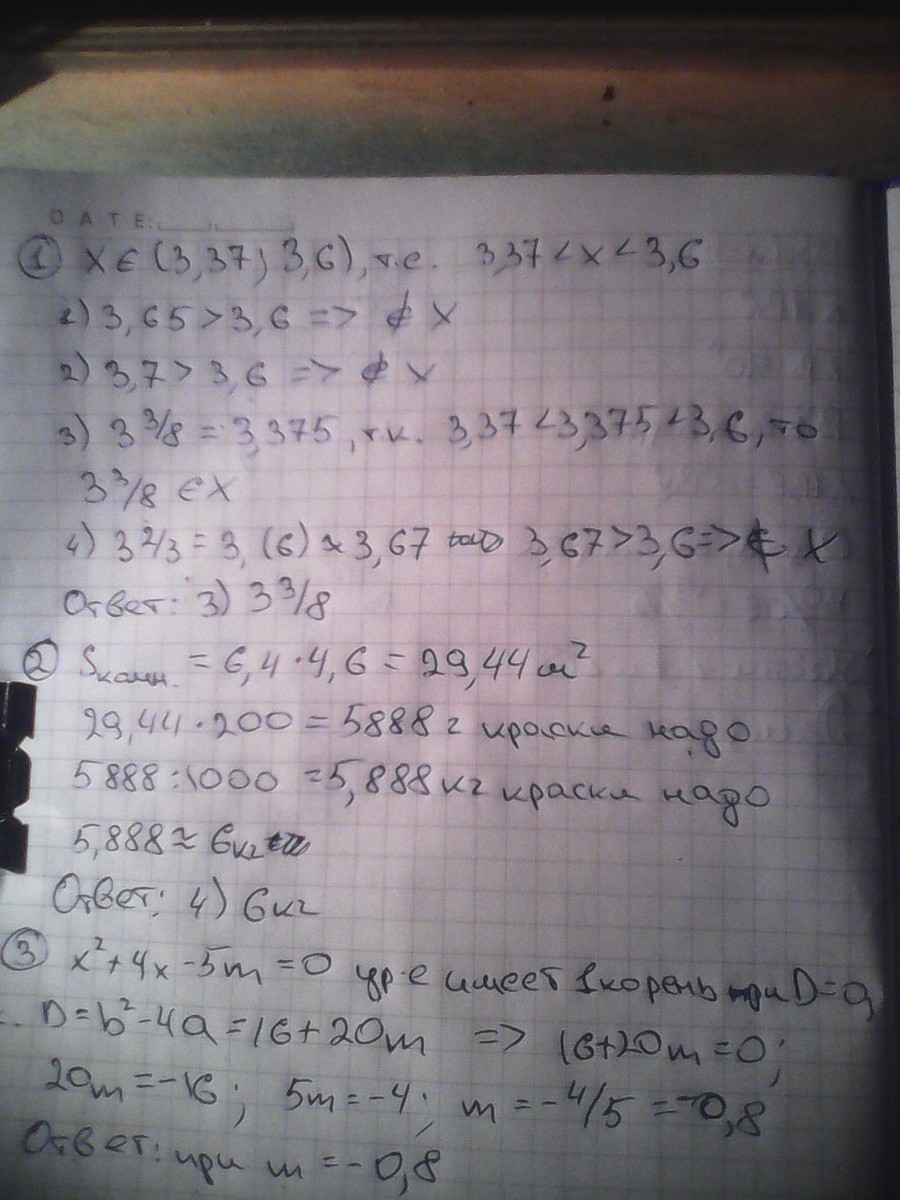 DATE:
① X ∈ (3,37; 3,6), т.е. 3,37 < x < 3,6
1) 3,65 > 3,6 => ∉ X
2) 3,7 > 3,6 => ∉ X
3) 3 3/8 = 3,375, т.к. 3,37 < 3,375 < 3,6, то
3 3/8 ∈ X
4) 3 2/3 = 3,(6) ≈ 3,67 3,67 > 3,6 => ∉ X
Ответ: 3) 3 3/8
② Sкомн. = 6,4 · 4,6 = 29,44 м²
29,44 · 200 = 5888 г краски надо
5888 : 1000 = 5,888 кг краски надо
5,888 ≈ 6 кг
Ответ: 4) 6 кг
③ x² + 4x - 5m = 0 ур-е имеет 1 корень при D = 0,
D = b² - 4a = 16 + 20m => 16 + 20m = 0;
20m = -16; 5m = -4; m = -4/5 = -0,8
Ответ: при m = -0,8